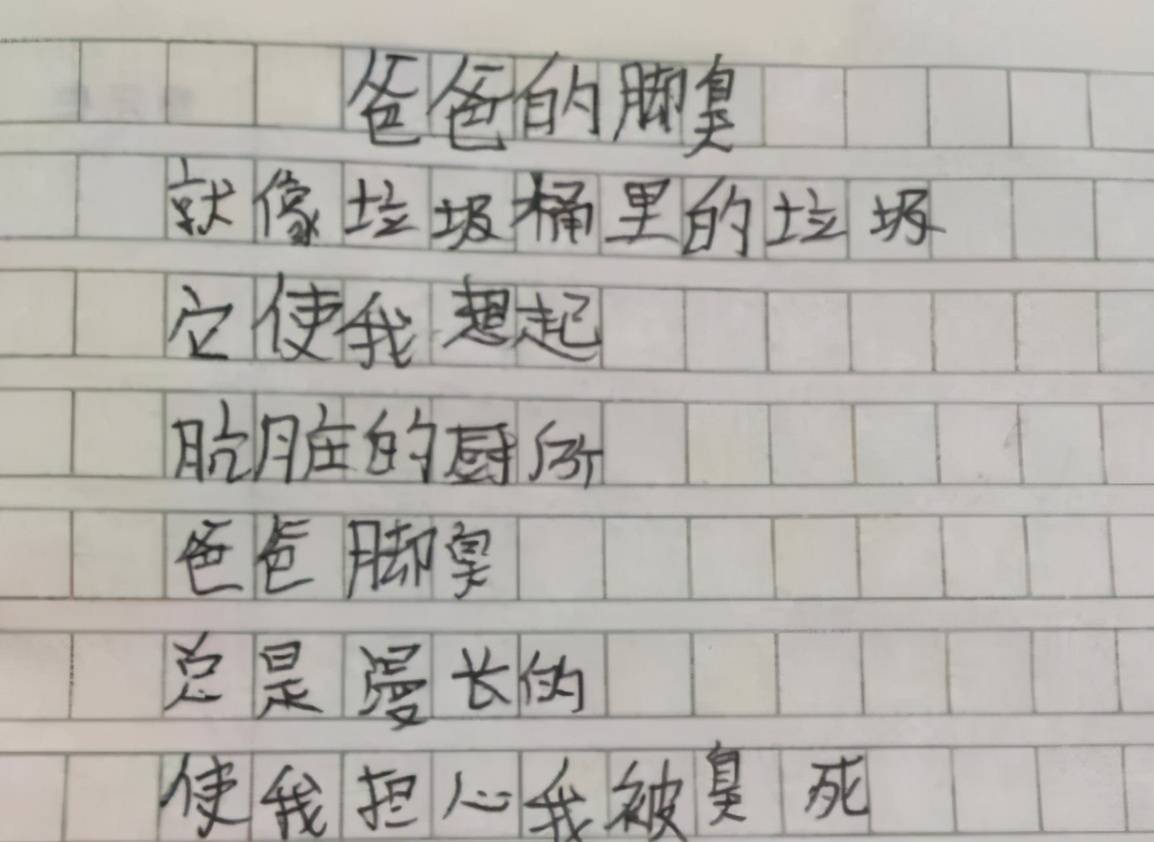 爸爸的脚臭
就像垃圾桶里的垃圾
它使我想起
肮脏的厨所
爸爸脚臭
总是漫长的
使我担心我被臭死